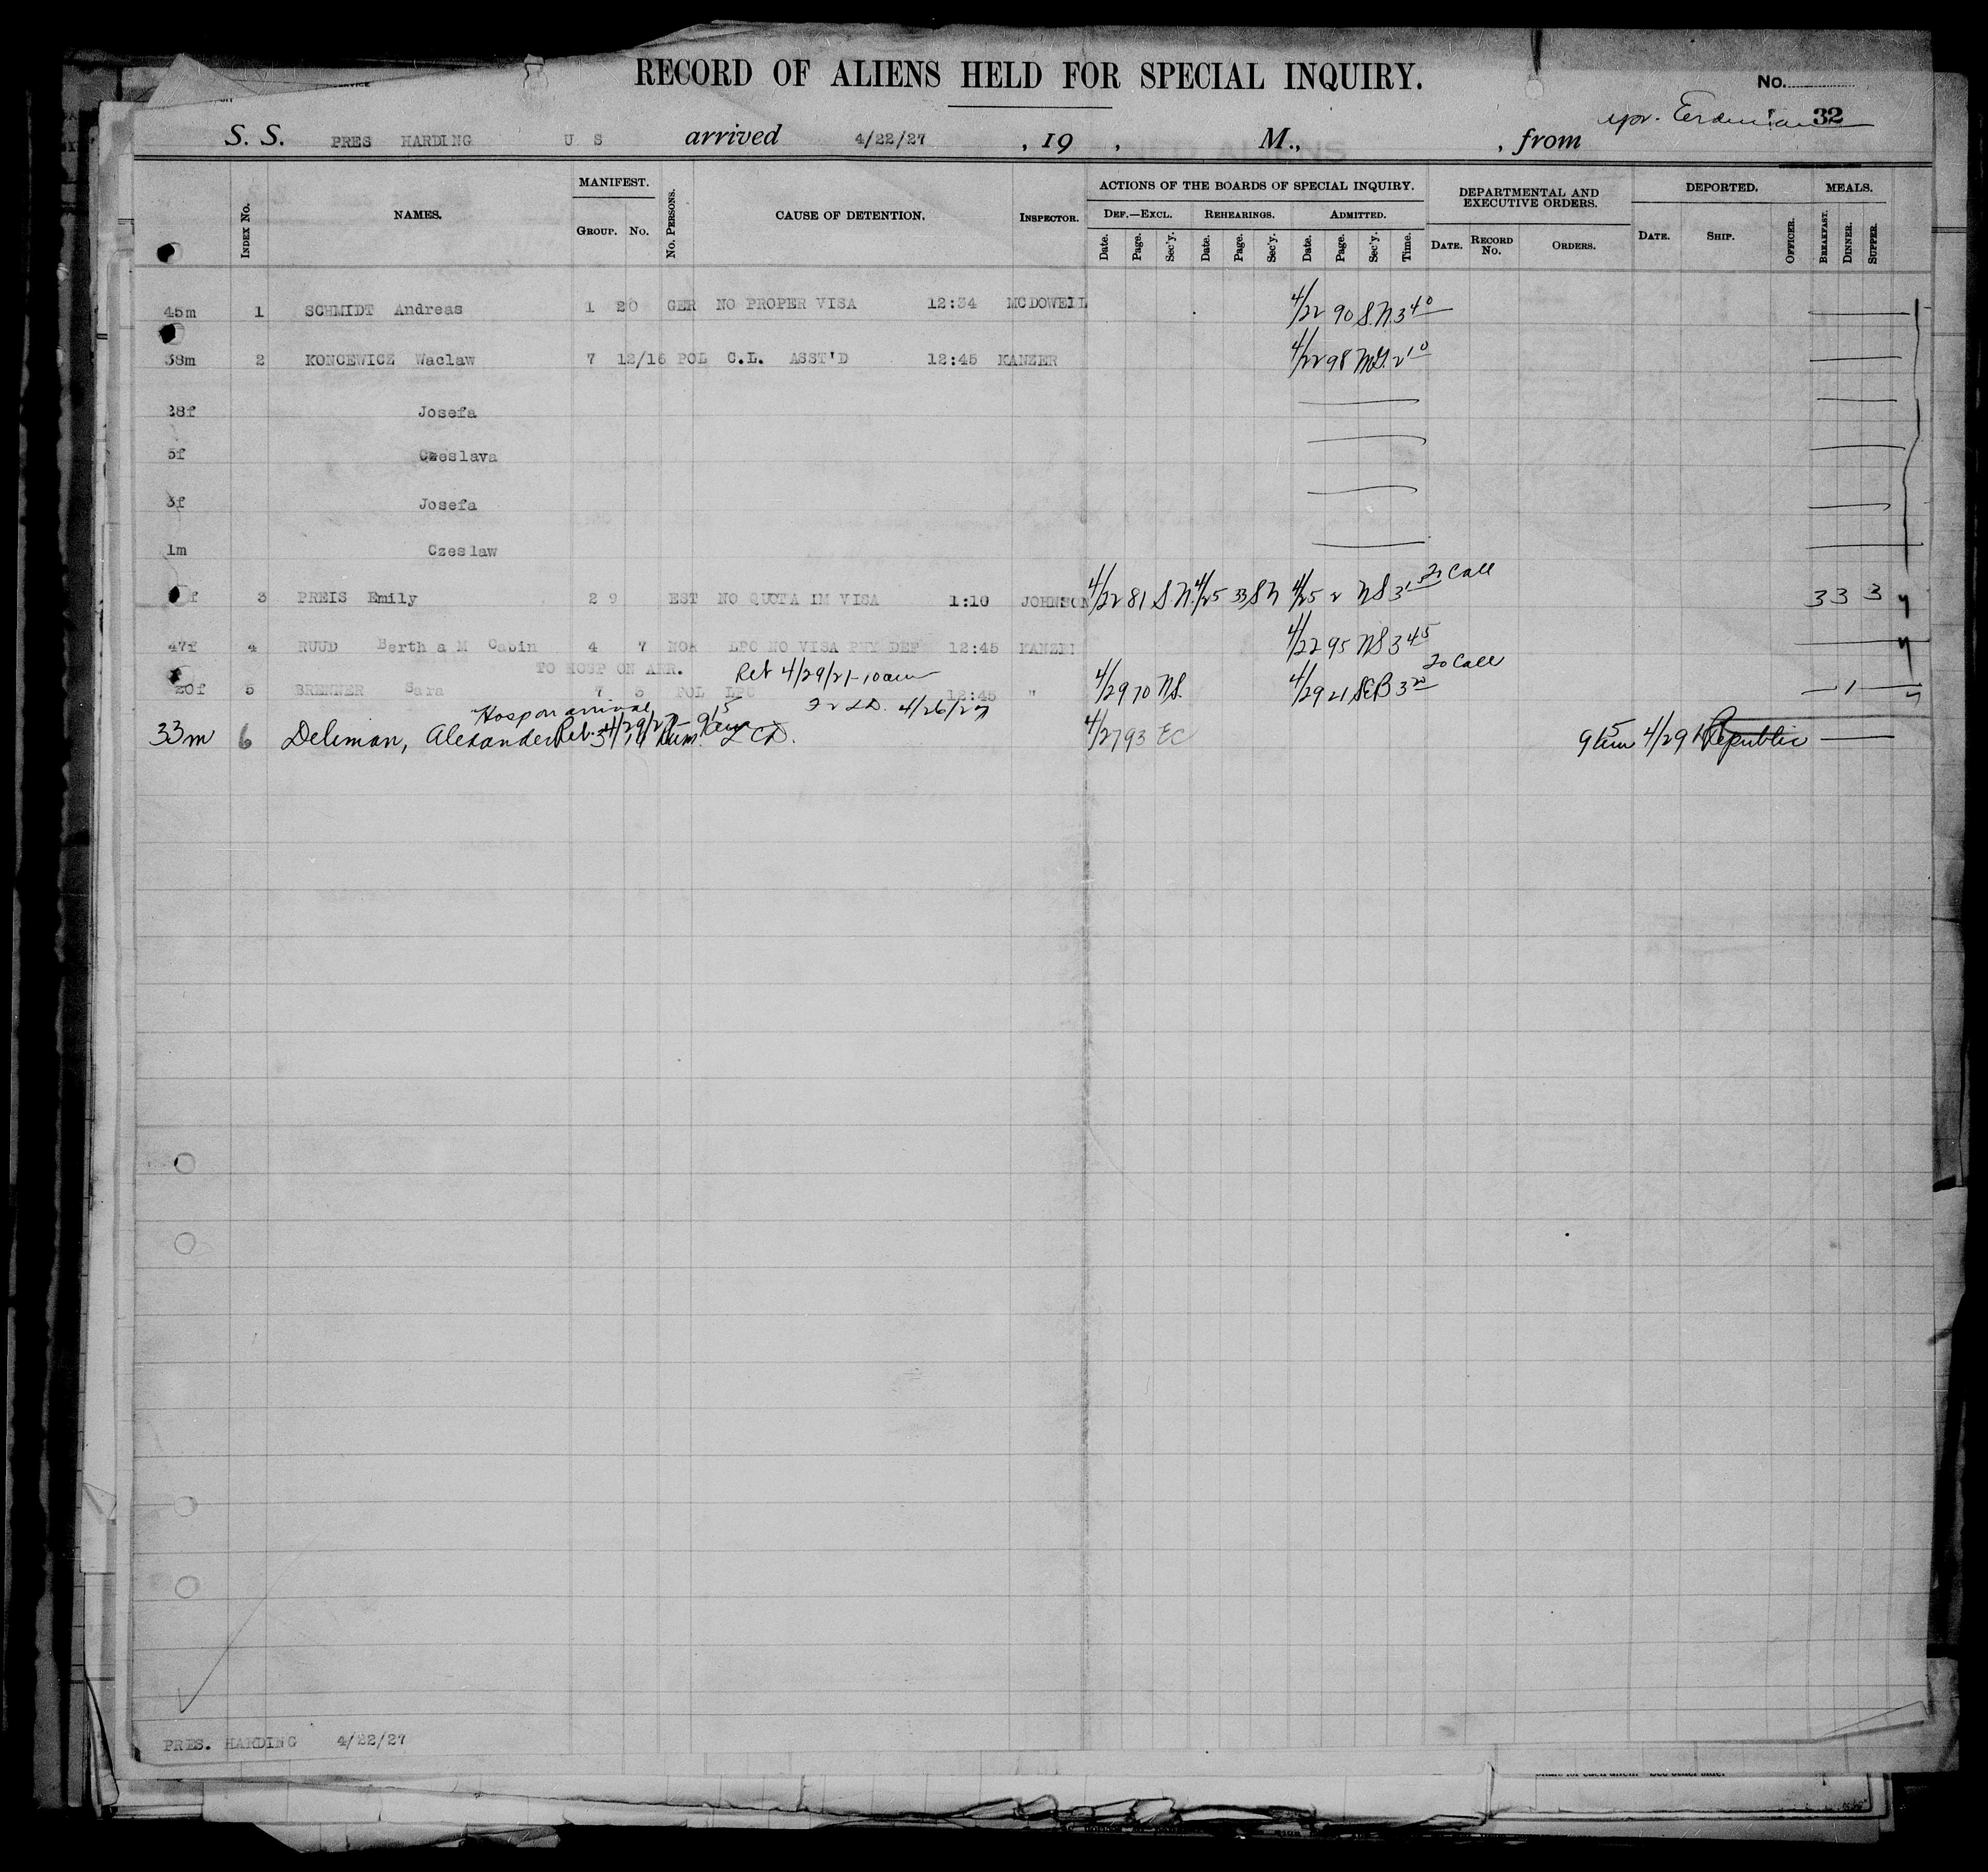 RECORD OF ALIENS HELD FOR SPECIAL INQUIRY.
No.
32
S. S. PRES HARDING U S arrived 4/22/27 , 19 , M., , from
MANIFEST.
ACTIONS OF THE BOARDS OF SPECIAL INQUIRY.
DEPARTMENTAL AND EXECUTIVE ORDERS.
DEPORTED.
MEALS.
INDEX No. NAMES. GROUP. No. No. PERSONS. CAUSE OF DETENTION. INSPECTOR.
DEF.—EXCL. REHEARINGS. ADMITTED.
Date. Page. Sec'y. Date. Page. Sec'y. Date. Page. Sec'y. Time. DATE. RECORD No. ORDERS. DATE. SHIP. OFFICER. BREAKFAST. DINNER. SUPPER.
45m 1 SCHMIDT Andreas 1 20 GER NO PROPER VISA 12:34 MCDOWELL 4/22 90 S.N. 3 40
38m 2 KONCEWICZ Waclaw 7 12/16 POL C.L. ASST'D 12:45 KANZER 4/22 98 2 10
28f Josefa
5f Czeslava
3f Josefa
1m Czeslaw
f 3 PREIS Emily 2 9 EST NO QUOTA IM VISA 1:10 JOHNSON 4/22 81 S.N. 4/25 33 S N 4/25 2 NS 3 15 To Call 3 3 3
47f 4 RUUD Berth a M Cabin 4 7 NOR LPC NO VISA PHY DEF 12:45 KANZE 4/22 95 NS 3 45
TO HOSP ON ARR. Ret 4/29/27-10am
20f 5 BRENNER Sara 7 5 POL LPC 12:45 " 4/29 70 NS. 4/29 21 SEB 3 20 To Call 1
Hosp on arrival 4/26/27
33m 6 Deliman, Alexander Rel. 4/29/27 9 15 Rum. LCD. 4/27 93 EC 9 15 am 4/29 Republic
PRES. HARDING 4/22/27